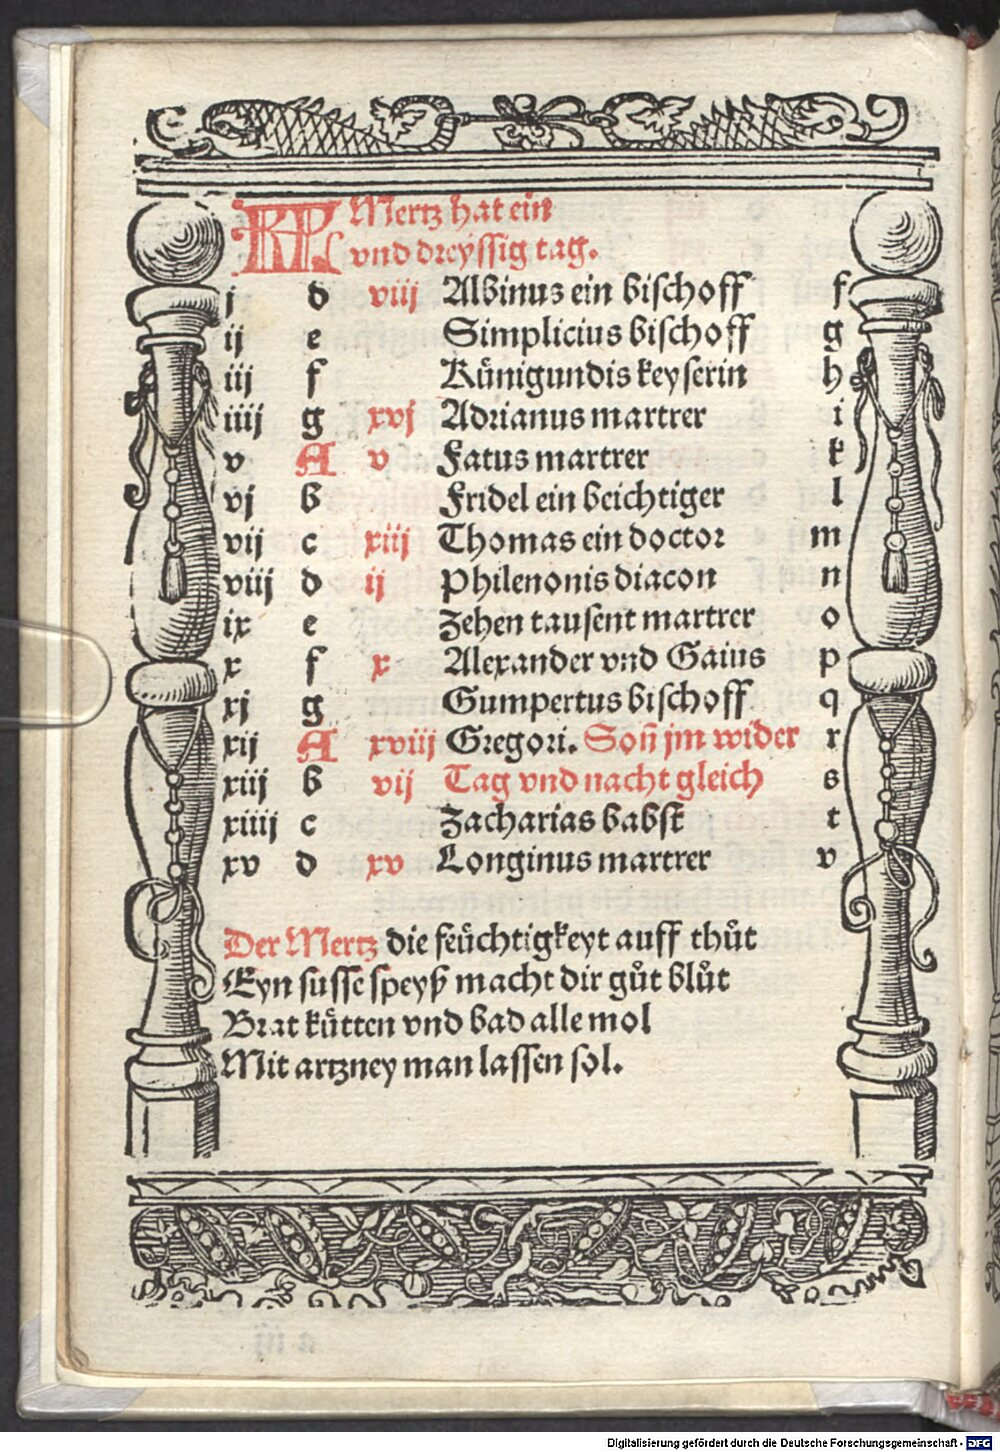 KL Mertz hat ein
vnd dreyssig tag.
j d viij Albinus ein bischoff f
ij e Simplicius bischoff g
iij f Kuͤnigundis keyserin h
iiij g xvj Adrianus martrer i
v A v Fatus martrer k
vj b Fridel ein beichtiger l
vij c xiij Thomas ein doctor m
viij d ij Philenonis diacon n
ix e Zehen tausent martrer o
x f x Alexander vnd Gaius p
xj g Gumpertus bischoff q
xij A xviij Gregori. Soñ jm wider r
xiij b vij Tag vnd nacht gleich s
xiiij c Zacharias babst t
xv d xv Longinus martrer v
Der Mertz die feuͤchtigkeyt auff thuͦt
Eyn susse speyß macht dir guͦt bluͦt
Brat kuͤtten vnd bad alle mol
Mit artzney man lassen sol.
Digitalisierung gefördert durch die Deutsche Forschungsgemeinschaft - DFG